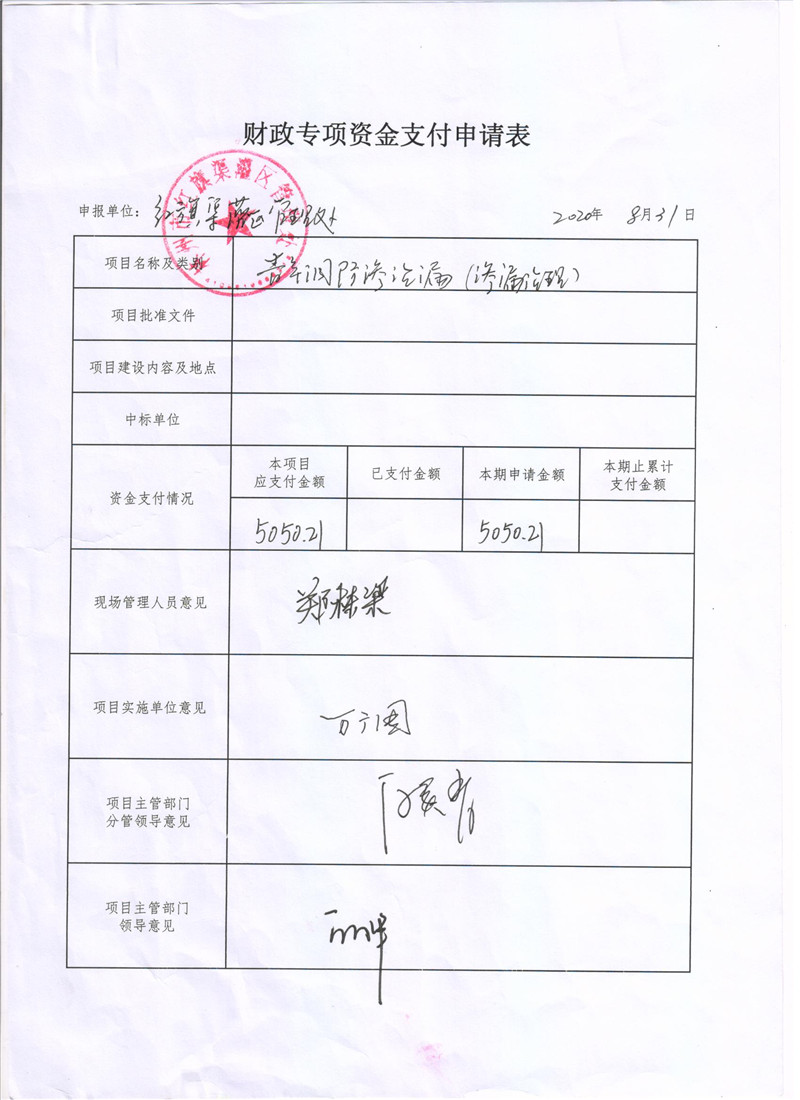 财政专项资金支付申请表
申报单位：红旗渠灌区管理处 2020年 8月31日
项目名称及类别 青年洞防渗治漏（渗漏治理）
项目批准文件
项目建设内容及地点
中标单位
资金支付情况
本项目
应支付金额
已支付金额
本期申请金额
本期止累计
支付金额
5050.21 5050.21
现场管理人员意见
项目实施单位意见
项目主管部门
分管领导意见
项目主管部门
领导意见